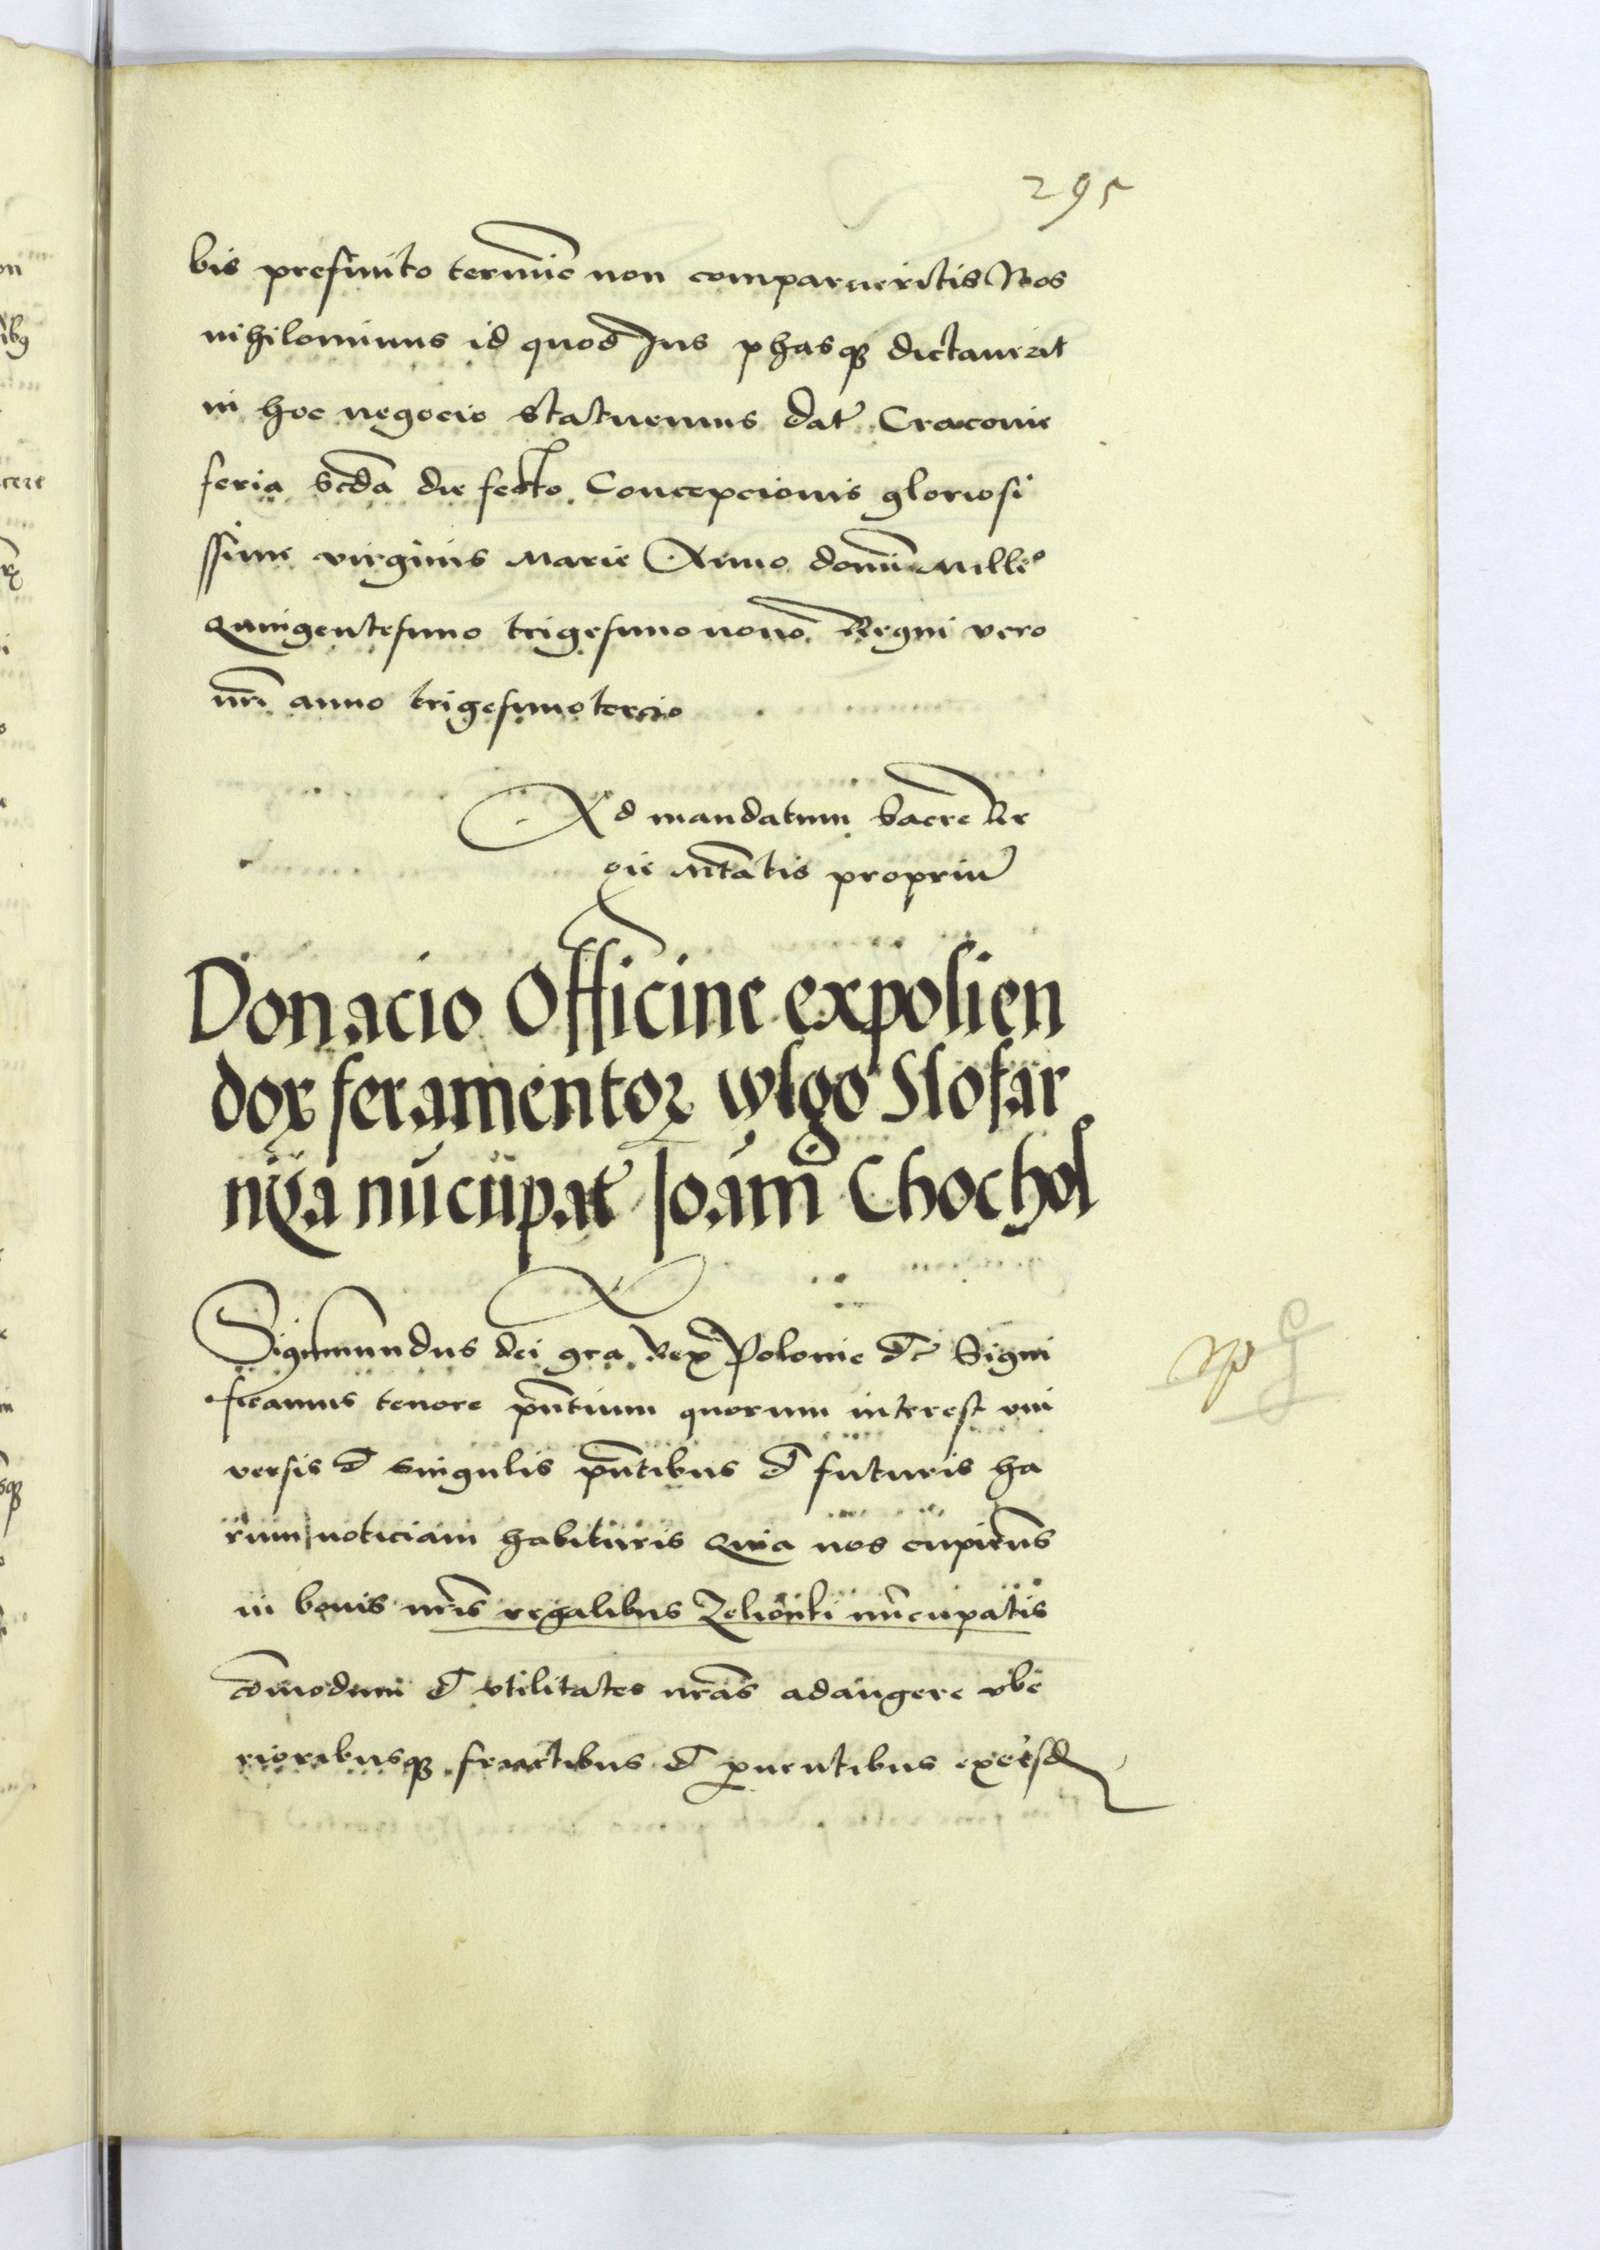 295
bis prefinito termīe non comparueritis Nos
nihilominus id quod Jus phasqȝ dictauerit
in hoc negocio statuemus dat̃ Cracouie
feria scďa die festo Concepcionis gloriosi
ssime virginis Marie Anno domī Milleo
Quingentesimo trigesimo nono Regni vero
nr̄i anno trigesimotercio
Ad mandatum Sacre Re
gie Mtātis propriū
Donacio Officine expolien
doꝝ feramentoꝝ wlgo Slofar
nÿa nūcupat̃ Joām̄ Chochol
Sigismundus dei gra Rex Polonie etc̃ Signi
ficamus tenore pn̄tium quorum interest vni
versis et singulis pn̄tibus et futuris ha
rum noticiam habituris Quia nos cupiens
in bonis nr̄is regalibus Zelionki nūcupatis
cōmodum et vtilitates nrās adaugere vbe
rioribusqȝ fructibus et ꝓuentibus ex eisd